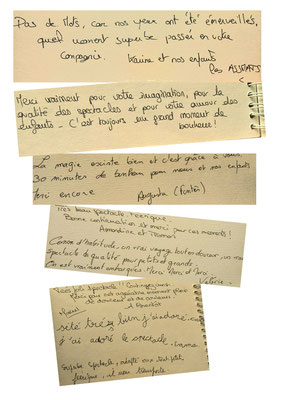 Pas de Mots, car nos yeux ont été émerveillés,
quel moment superbe passé en votre
compagnie. Karine et nos enfants
les
Merci vraiment pour votre imagination, pour la
qualité des spectacles et pour votre amour des
enfants - C'est toujours un grand moment de
bonheur !
La magie existe bien et c'est grâce à vous
30 minutes de bonheur pour maman et nos enfants
encore Augusta
Très beau spectacle, féerique.
Bonne continuation et merci pour ces moments !
Amandine et
Comme d'habitude, un vrai voyage tout en douceur, un vrai
spectacle de qualité pour petits et grands.
On est vraiment embarqués. Merci
Valérie -
Très joli spectacle !
Merci pour ces moments plein
de douceur et de couleurs
sité très bien j'ai adoré
j'ai adoré le spectacle. Emma
Superbe spectacle, adapté aux tout petits,
féerique, et